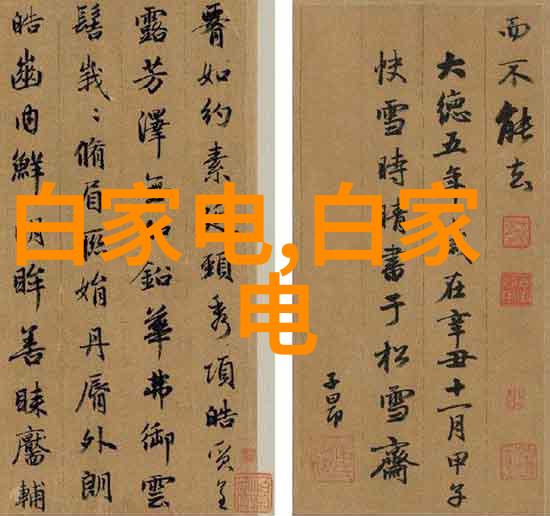 如約素頸秀項皓質呈
露芳澤無加鉛華弗御雲
髻峩〻脩眉聮娟丹脣外朗
皓齒内鮮明眸善睞靨輔
而不能去
大德五年歲在辛丑十一月甲子
快雪時晴書于松雪齋
子昂
白家电,白家
电